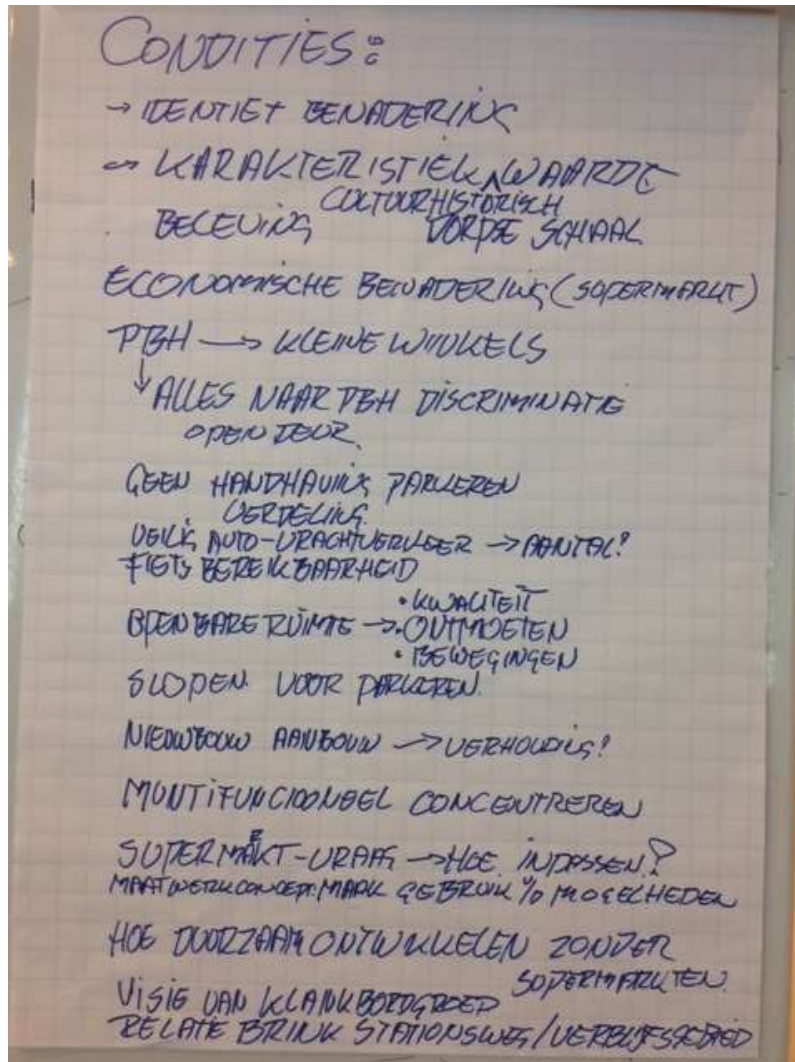 CONDITIES:
→ IDENTIET BENADERING
→ KARAKTERISTIEK ^ WAARDE
CULTUURHISTORISCH
BELEVING DORPSE SCHAAL
ECONOMISCHE BENADERING (SUPERMARKT)
PBH → KLEINE WINKELS
↓ ALLES NAAR PBH DISCRIMINATIE
OPEN DEUR.
GEEN HANDHAVING PARKEREN
VERDELING
VEILIG AUTO-VRACHTVERKEER → AANTAL?
FIETS BEREIKBAARHEID
• KWALITEIT
OPENBARE RUIMTE → • ONTMOETEN
• BEWEGINGEN
SLOPEN VOOR PARKEREN.
NIEUWBOUW AANBOUW → VERHOUDING?
MUNTIFUNCIONEEL CONCENTREREN
SUPERMARKT-VRAAG → HOE INPASSEN?
MAATWERKCONCEPT. MARK GEBRUIK % MOGELHEDEN
HOE DUURZAAM ONTWIKKELEN ZONDER
SUPERMARKTEN.
VISIE VAN KLANKBORDGROEP
RELATE BRINK STATIONSWEG/VERBLIJFSGEBIED